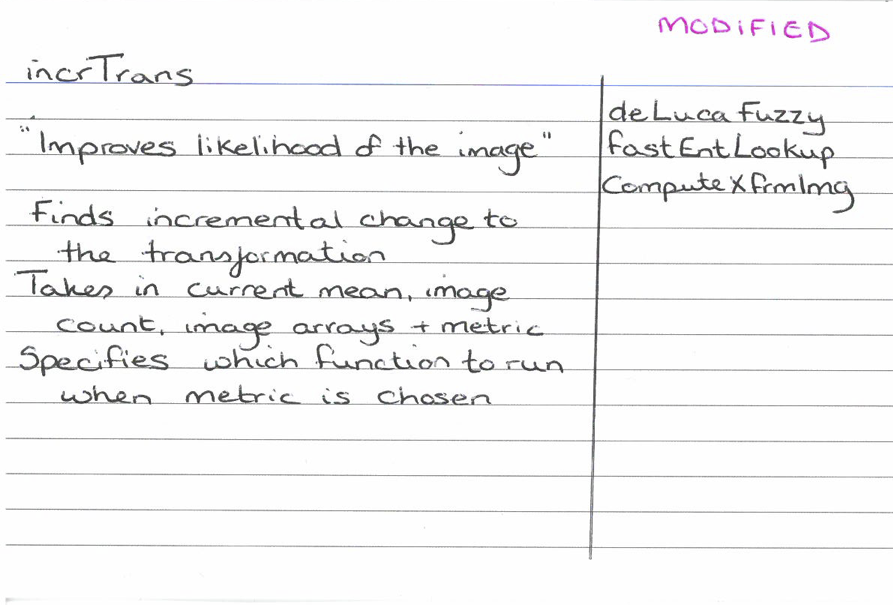 MODIFIED
incrTrans
"Improves likelihood of the image"
Finds incremental change to
the transformation
Takes in current mean, image
count, image arrays + metric
Specifies which function to run
when metric is chosen
deLuca Fuzzy
fastEntLookup
ComputeXfrmImg